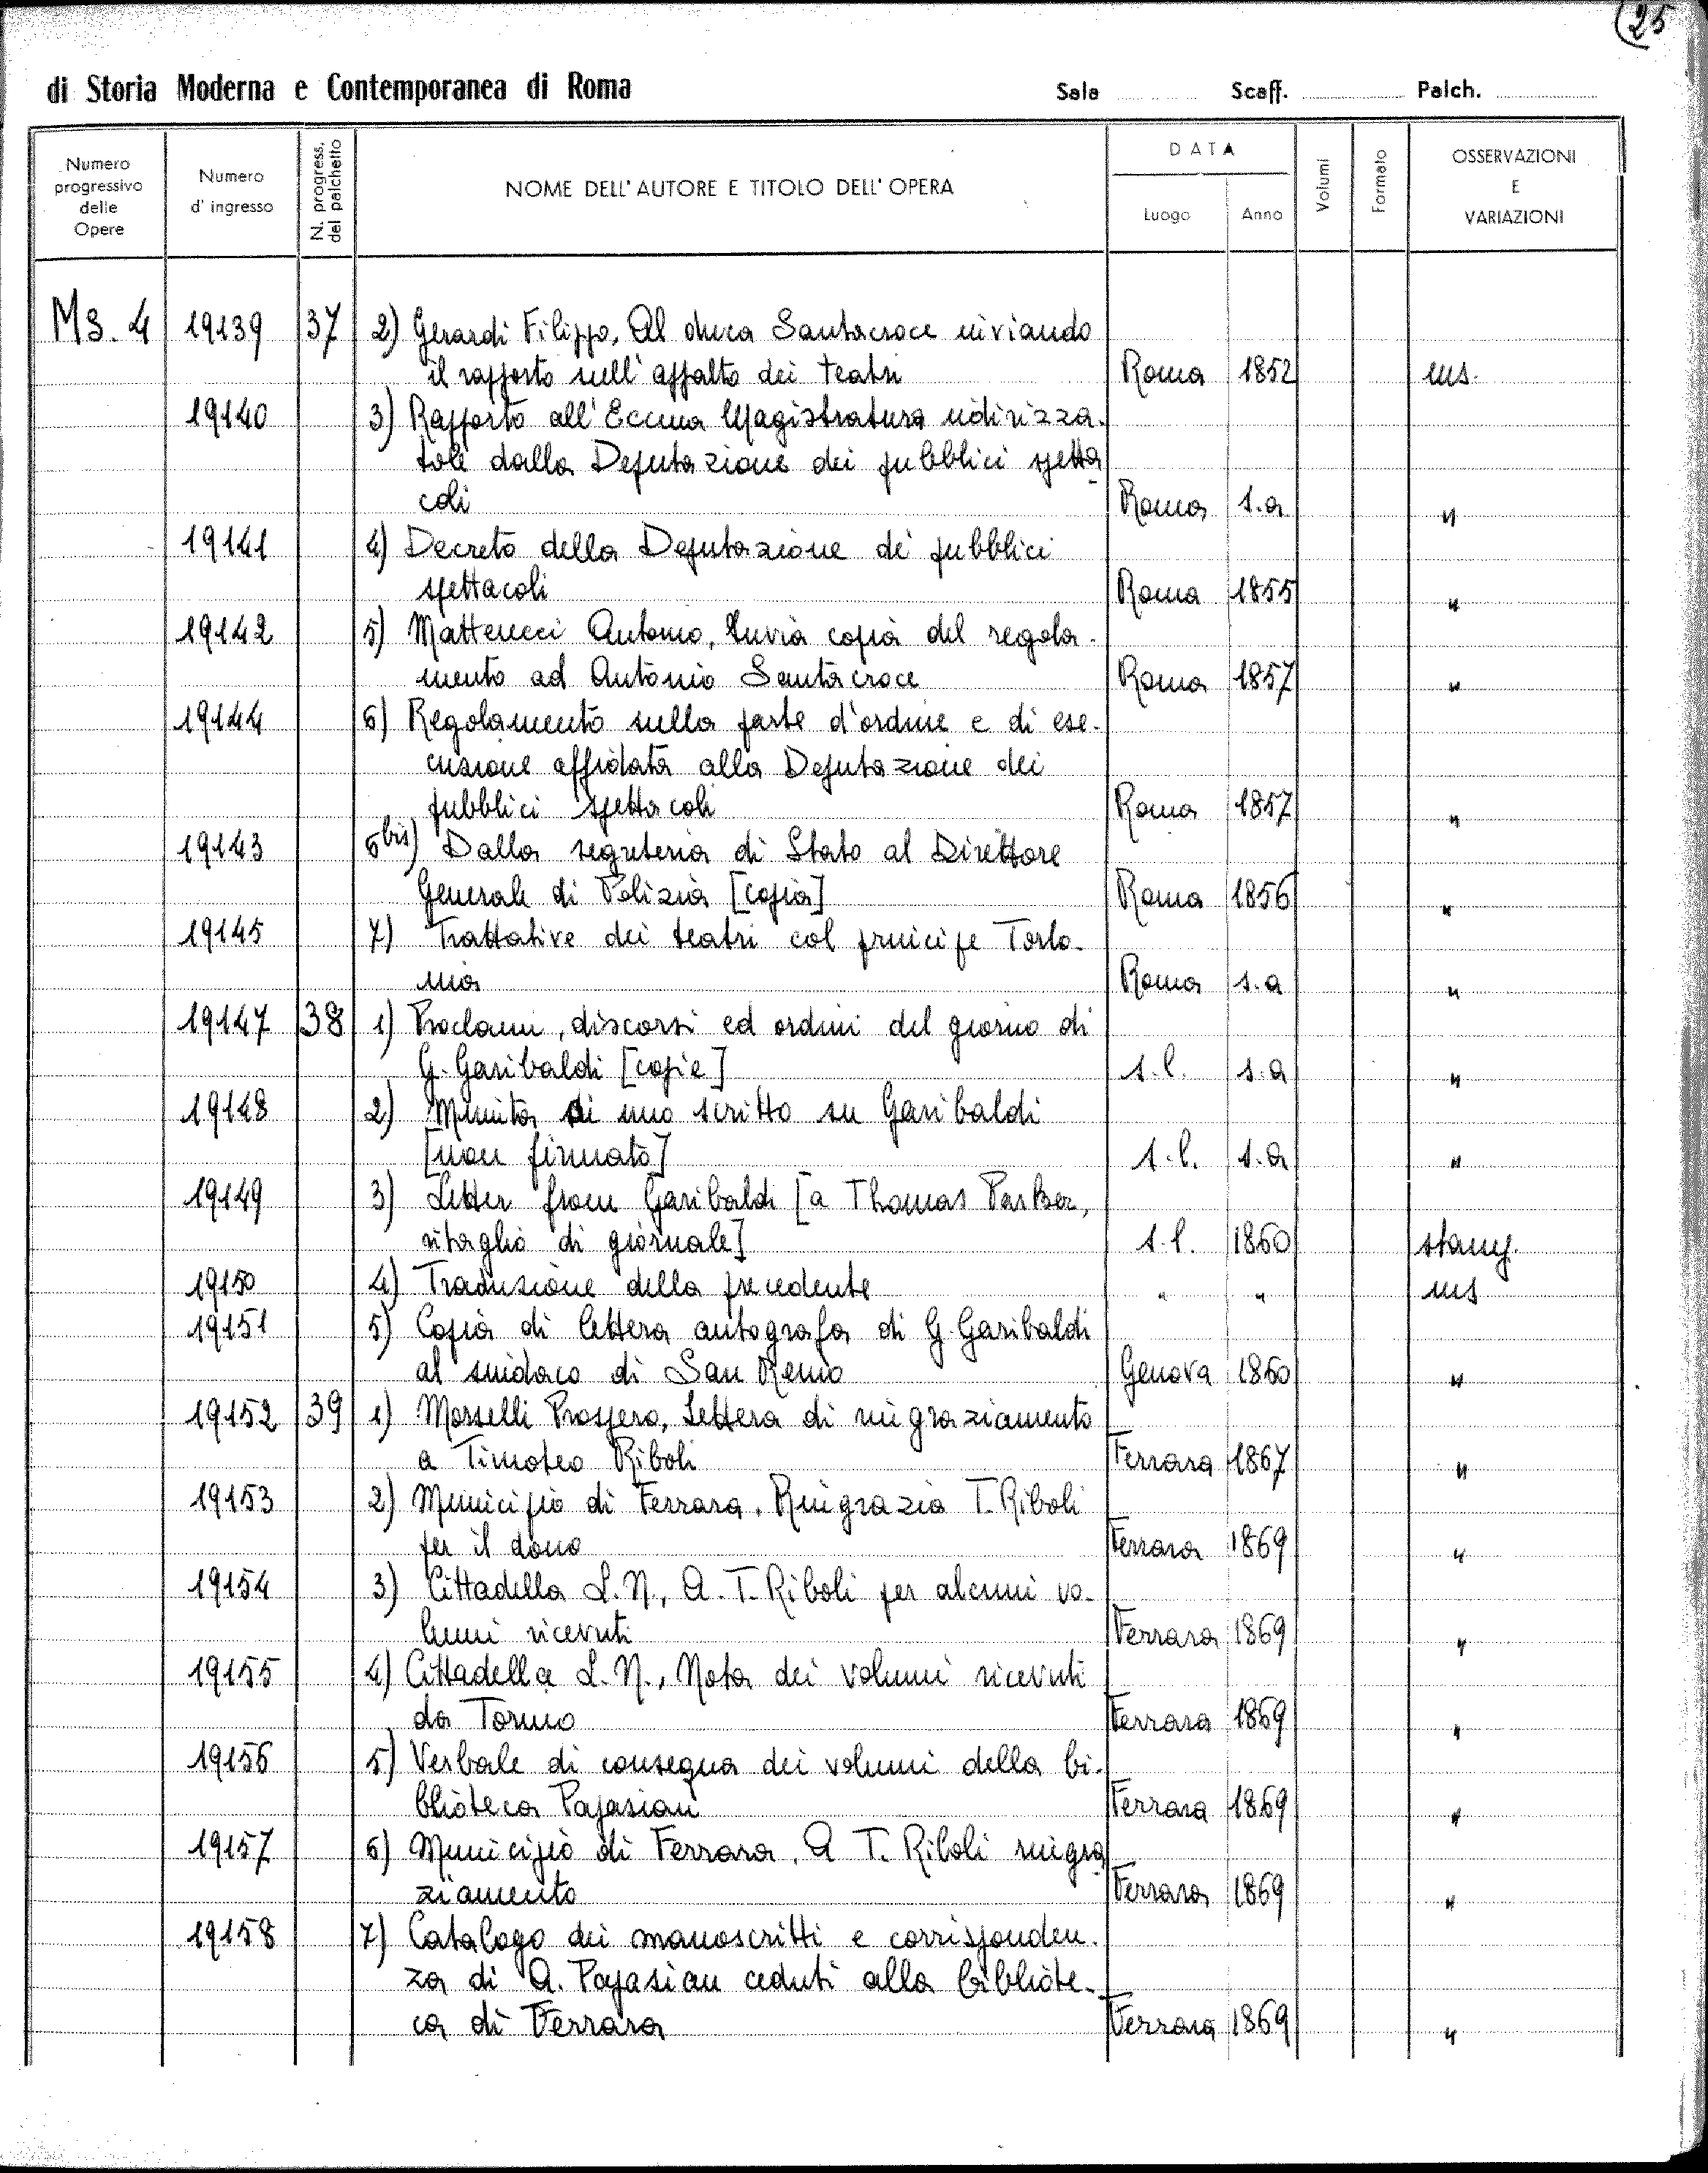 25
di Storia Moderna e Contemporanea di Roma Sala Scaff. Palch.
Numero progressivo delle Opere
Numero d' ingresso
N. progress. del palchetto
NOME DELL' AUTORE E TITOLO DELL' OPERA
DATA
Luogo
Anno
Volumi
Formato
OSSERVAZIONI E VARIAZIONI
Ms. 4 19139 37 2) Gerardi Filippo, Al duca Santacroce inviando
il rapporto sull' appalto dei teatri Roma 1852 ms.
19140 3) Rapporto all' Eccma Magistratura indirizza-
tole dalla Deputazione dei pubblici spetta
coli Roma s.a "
19141 4) Decreto della Deputazione de' pubblici
spettacoli Roma 1855 "
19142 5) Matteucci Antonio, Invia copia del regola-
mento ad Antonio Santacroce Roma 1857 "
19144 6) Regolamento sulla parte d'ordine e di ese-
cuzione affidata alla Deputazione dei
pubblici spettacoli Roma 1857 "
19143 6bis) Dalla segreteria di Stato al Direttore
Generale di Polizia [copia] Roma 1856 "
19145 7) Trattative dei teatri col principe Torlo-
nia Roma s.a "
19147 38 1) Proclami, discorsi ed ordini del giorno di
G. Garibaldi [copie] s.l. s.a "
19148 2) Minuta di uno scritto su Garibaldi
[non firmato] s.l. s.a "
19149 3) Letter from Garibaldi [a Thomas Parker,
ritaglio di giornale] s.l. 1860 stamp.
19150 4) Traduzione della precedente " " ms
19151 5) Copia di lettera autografa di G. Garibaldi
al sindaco di San Remo Genova 1860 "
19152 39 1) Morselli Prospero, Lettera di ringraziamento
a Timoteo Riboli Ferrara 1867 "
19153 2) Municipio di Ferrara. Ringrazia T. Riboli
per il dono Ferrara 1869 "
19154 3) Cittadella L. N., A. T. Riboli per alcuni vo-
lumi ricevuti Ferrara 1869 "
19155 4) Cittadella L. N., Nota dei volumi ricevuti
da Torino Ferrara 1869 "
19156 5) Verbale di consegna dei volumi della bi-
blioteca Papasian Ferrara 1869 "
19157 6) Municipio di Ferrara. A T. Riboli ringra
ziamento Ferrara 1869 "
19158 7) Catalogo dei manoscritti e corrisponden-
za di A. Papasian ceduti alla bibliote-
ca di Ferrara Ferrara 1869 "